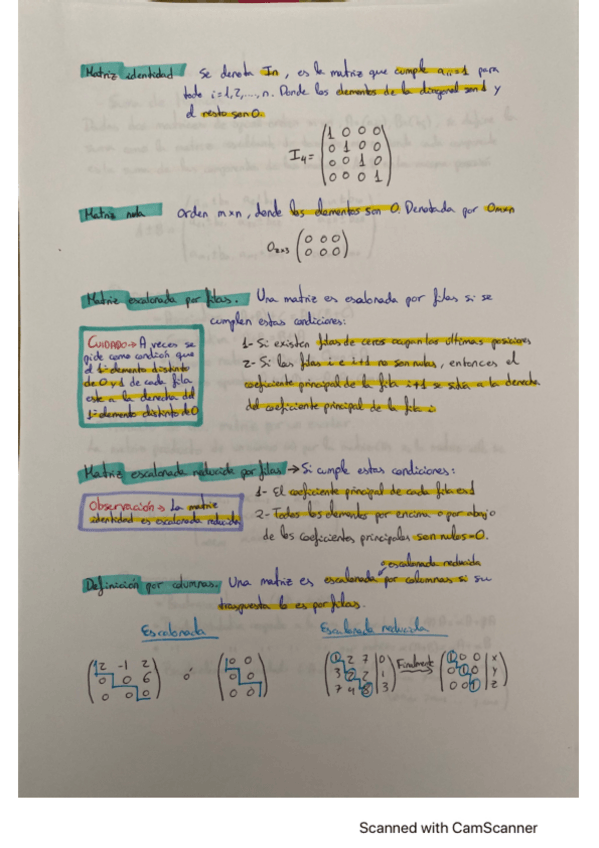 Matriz identidad Se denota In, es la matriz que cumple aii=1 para
todo i=1,2,...,n. Donde los elementos de la diagonal son 1 y
el resto son 0.
I4= (1 0 0 0
0 1 0 0
0 0 1 0
0 0 0 1)
Matriz nula Orden mxn, donde los elementos son 0. Denotada por 0mxn
02x3 (0 0 0
0 0 0)
Matriz escalonada por filas. Una matriz es escalonada por filas si se
cumplen estas condiciones:
CUIDADO→ A veces se
pide como condición que
el 1º elemento distinto
de 0 y 1 de cada fila
este a la derecha del
1º elemento distinto de 0
1- Si existen filas de ceros ocupan las últimas posiciones
2- Si las filas i e i+1 no son nulas, entonces el
coeficiente principal de la fila i+1 se sitúa a la derecha
del coeficiente principal de la fila i.
Matriz escalonada reducida por filas → Si cumple estas condiciones:
Observación → La matriz
identidad es escalonada reducida
1- El coeficiente principal de cada fila es 1
2- Todos los elementos por encima o por abajo
de los coeficientes principales son nulos=0.
o escalonada reducida
Definición por columnas. Una matriz es escalonada por columnas si su
traspuesta lo es por filas.
Escalonada Escalonada reducida
(1 2 -1 2
0 0 6
0 0 0) ó (1 0 0
0 0
0 0) (1 2 7 | 0
3 2 2 | 1
7 4 8 | 3) Finalmente (1 0 0 | x
0 1 0 | y
0 0 1 | z)
Scanned with CamScanner